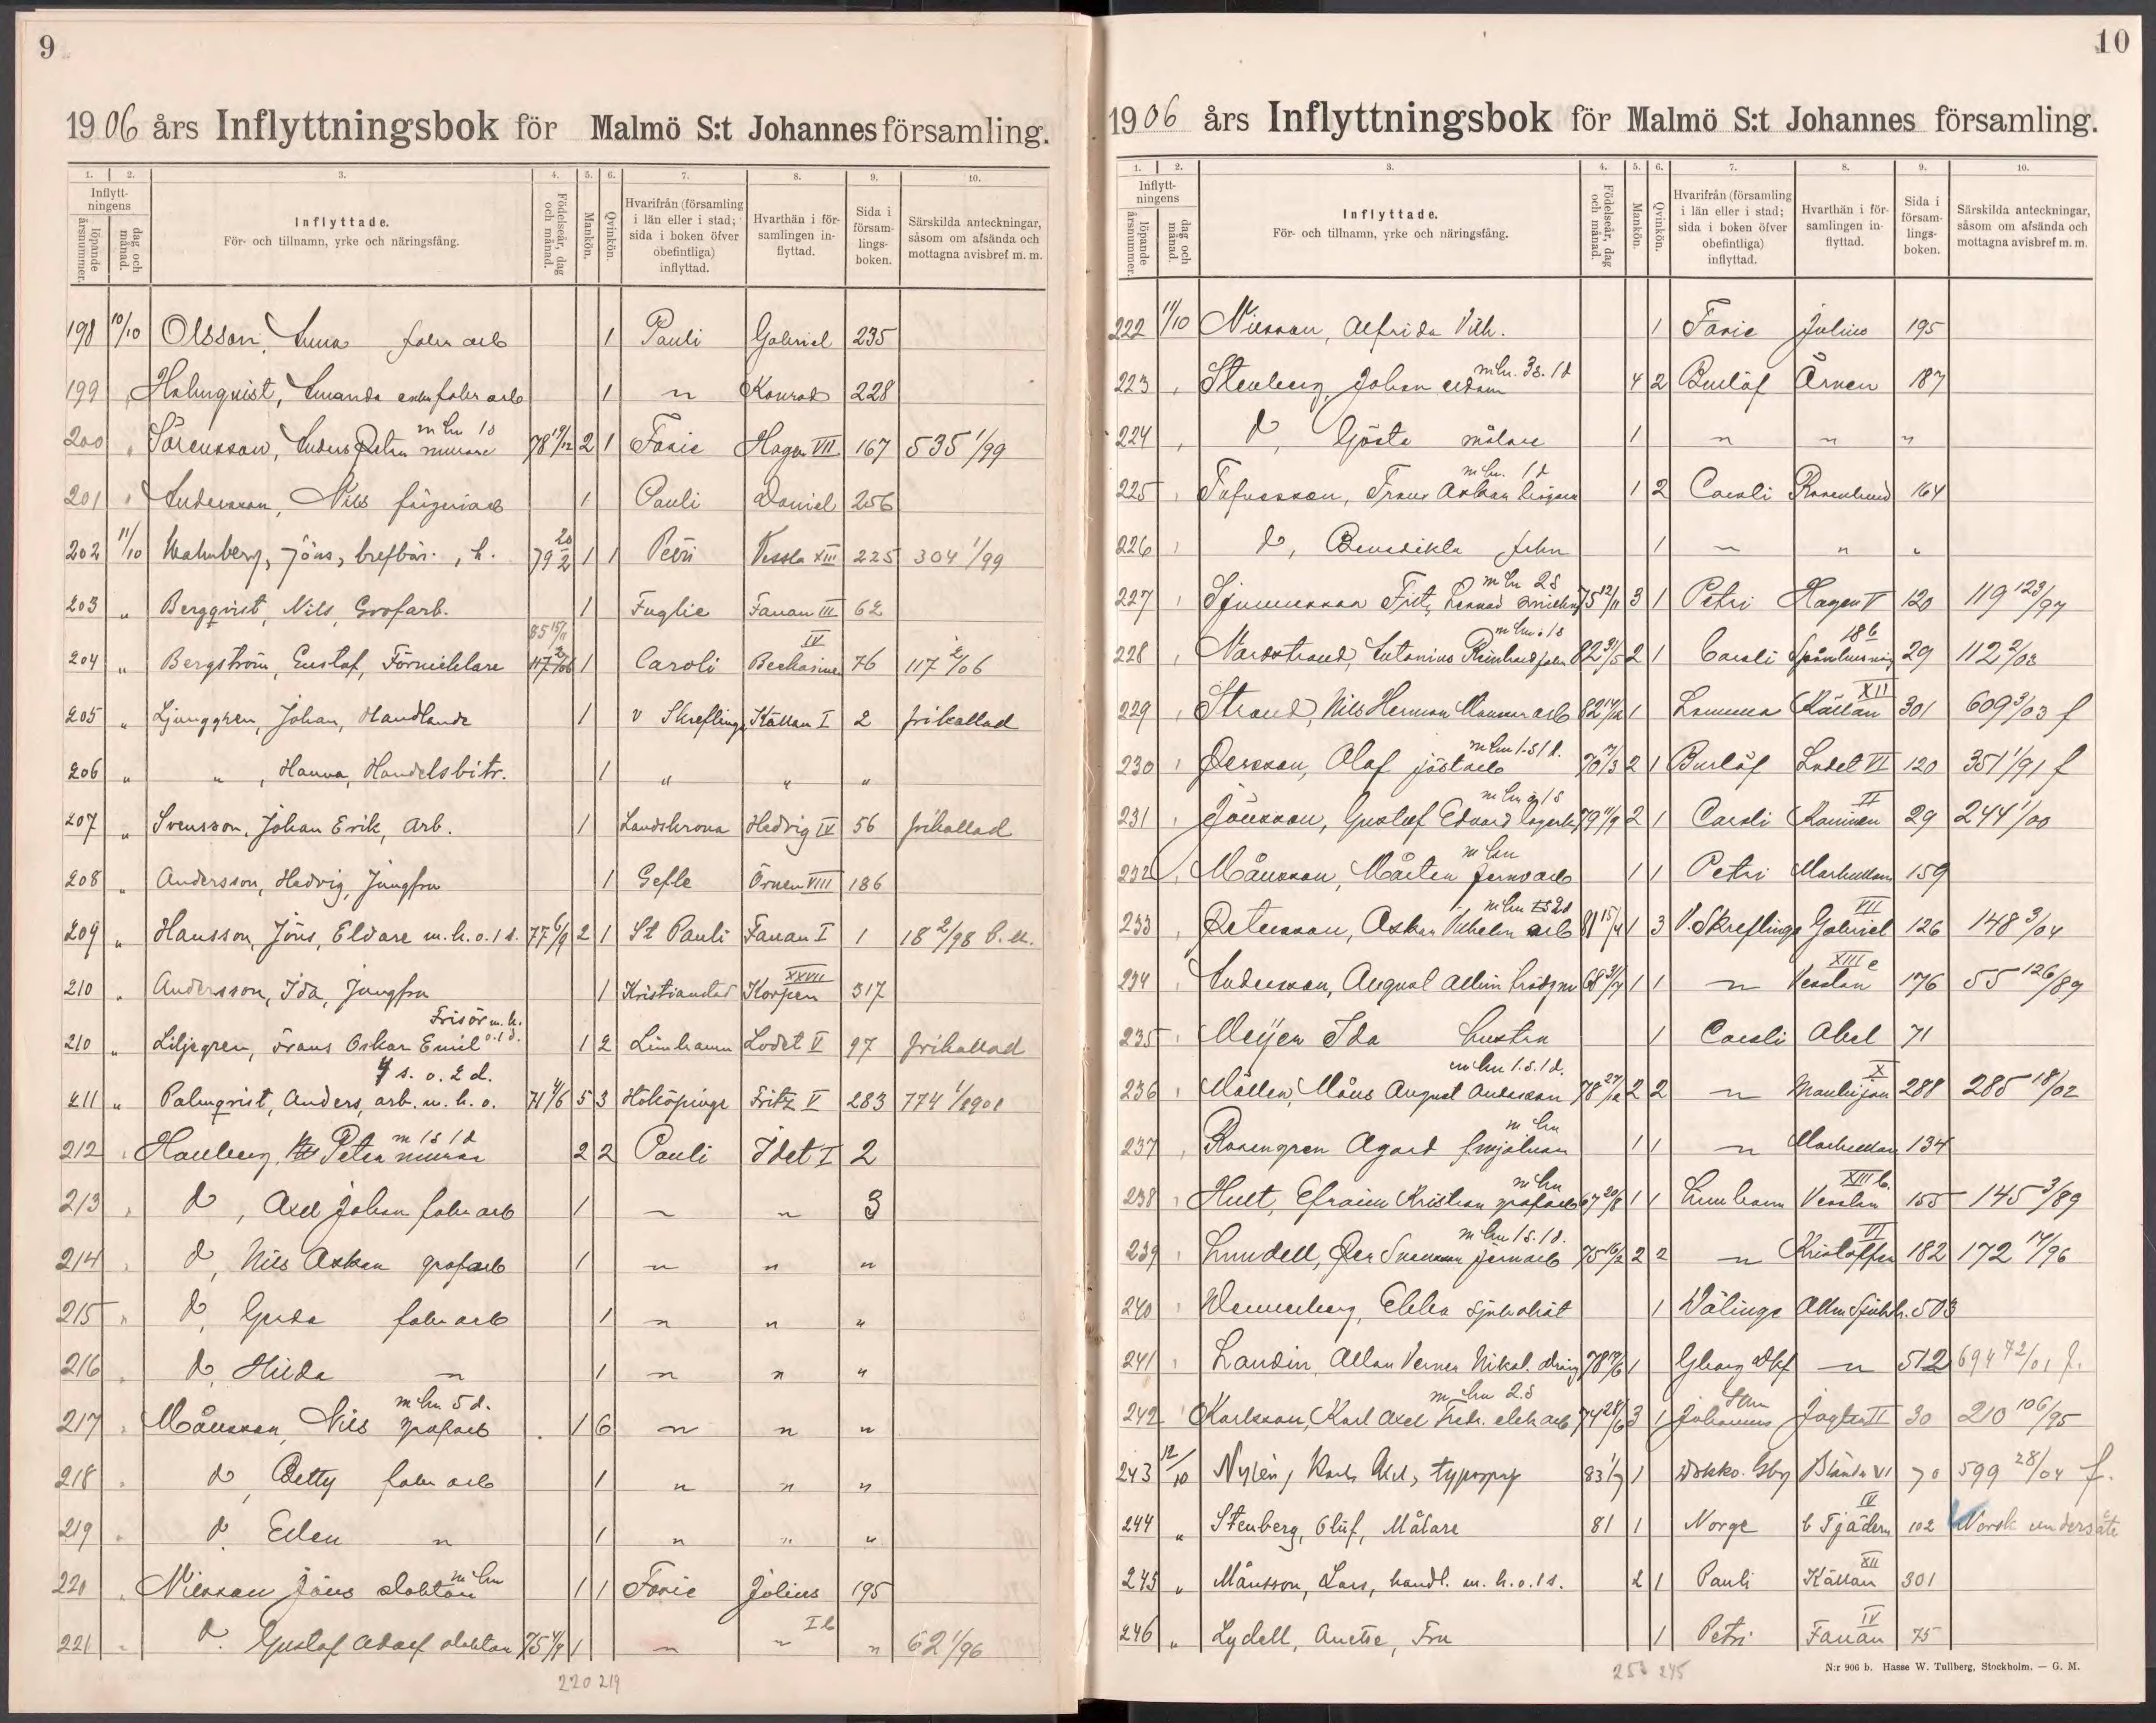 9
1906 års Inflyttningsbok för Malmö S:t Johannes församling.
1. 2. 3. 4. 5. 6. 7. 8. 9. 10.
Inflyttningens
löpande årsnummer.
dag och månad.
Inflyttade.
För- och tillnamn, yrke och näringsfång.
Födelseår, dag och månad.
Mankön.
Qvinkön.
Hvarifrån (församling i län eller i stad; sida i boken öfver obefintliga) inflyttad.
Hvarthän i församlingen inflyttad.
Sida i församlingsboken.
Särskilda anteckningar, såsom om afsända och mottagna avisbref m. m.
198 10/10 Olsson, Anna fabr arb 1 Pauli Gabriel 235
199 " Holmquist, Amanda fabr arb 1 " Konrad 228
200 " Sörensson, Anders Peter murare m hu 1s 78 2 1 Fosie Hagen VII 167 535 1/99
201 " Andersson, Nils färgeriarb 1 Pauli Daniel 256
202 11/10 Malmberg, Jöns, brefbär., h. 79 20/2 1 1 Petri Vessla XIII 225 304 1/99
203 " Bergqvist, Nils, Grofarb. 1 Fuglie Fanan III 62
204 " Bergström, Gustaf, Förnicklare 85 15/11 1 Caroli Beckasinen IV 76 117 2/06
205 " Ljunggren, Johan, Handlande 1 V Skreflinge Källan I 2 frikallad
206 " " , Hanna, Handelsbitr. 1 " " "
207 " Svensson, Johan Erik, Arb. 1 Landskrona Hedvig IV 56 frikallad
208 " Andersson, Hedvig, Jungfru 1 Gefle Örnen VIII 186
209 " Hansson, Jöns, Eldare m. h. o. 1 s. 77 6/9 2 1 St Pauli Fanan I 1 18 2/98
210 " Andersson, Ida, Jungfru 1 Kristianstad Korpen XXVII 317
210 " Liljegren, Frans Oskar Emil Frisör m. h. o. 1 d. 1 2 Limhamn Lodet V 97 frikallad
211 " Palmqvist, Anders, arb. m. h. o. 4 s. o. 2 d. 71 4/6 5 3 Hököpinge Fritz V 283 774 1/1901
212 " Hallberg, Peter murare m 1s 1d 2 2 Pauli Idet I 2
213 " D, Axel Johan fabr arb 1 " " 3
214 " D, Nils Oskar grofarb 1 " " "
215 " D, Gerda fabr arb 1 " " "
216 " D, Hilda " 1 " " "
217 " Månsson, Nils grofarb m hu 5 d. 1 6 " " "
218 " D, Betty fabr arb 1 " " "
219 " D, Ellen " 1 " " "
220 " Nilsson Jöns slaktare m hu 1 1 Fosie Julius 195
221 " D. Gustaf Adolf slaktare 75 4/9 1 " " I b " 62 1/96
220 219
10
1906 års Inflyttningsbok för Malmö S:t Johannes församling.
1. 2. 3. 4. 5. 6. 7. 8. 9. 10.
Inflyttningens
löpande årsnummer.
dag och månad.
Inflyttade.
För- och tillnamn, yrke och näringsfång.
Födelseår, dag och månad.
Mankön.
Qvinkön.
Hvarifrån (församling i län eller i stad; sida i boken öfver obefintliga) inflyttad.
Hvarthän i församlingen inflyttad.
Sida i församlingsboken.
Särskilda anteckningar, såsom om afsända och mottagna avisbref m. m.
222 11/10 Nilsson, Alfrida Vilh. 1 Fosie Julius 195
223 " Stenberg, Johan m hu. 3s. 1d 4 2 Burlöf Örnen 187
224 " D, Gösta målare 1 " " "
225 " Frans Oskar m hu. 1 d 1 2 Caroli Rosenlund 164
226 " D, Benedikta 1 " " "
227 " m hu 2 s 75 12/11 3 1 Petri Hagen V 120 119 123/97
228 " Nordstrand, Antonius Reinhard m hu 1s 82 2 1 Caroli 18 b 29 112 2/03
229 " Strand, Nils Herman arb 82 1 Lomma Källan XII 301 609 3/03 f
230 " Persson, Olof jästarb m hu 1.s 1 d. 70 2 1 Burlöf Lodet VI 120 351 1/91 f
231 " Jönsson, Gustaf Edvard m hu 1 s 79 11/9 2 1 Caroli Kaminen II 29 244 1/00
232 " Månsson, Mårten jernvarb m hu 1 1 Petri 159
233 " Petersson, Oskar Vilhelm arb m hu 2d 81 15/4 1 3 V. Skreflinge Gabriel VII 126 148 3/04
234 " Andersson, August Albin 68 1 1 " Vesslan XIII e 176 55 126/89
235 " Meijer Ida hustru 1 Caroli Abel 71
236 " Möller, Måns August Andersson m hu 1.s. 1 d. 78 2 2 " X 288 285 18/02
237 " Rosengren Agard m hu 1 1 " 134
238 " Hult, Efraim Kristian grofarb m hu 67 20/8 1 1 Limhamn Vesslan XIII b. 155 145 3/89
239 " Lundell, Per Svensson jernarb m hu 1 s. 1 d. 75 16/2 2 2 " Kristoffer VI 182 172 17/96
240 " Wennerberg, Ebba 1 Välinge Allm Sjukh. 503
241 " Landin, Allan Verner Nikol. dräng 78 1 Gborg Dkf " 512 694 72/01 f.
242 " Karlsson, Karl Axel Fredr. elek arb m hu 2. s 74 28/6 3 1 Johannes Sthm Jagten II 30 210 106/95
243 12/10 Nylén, Karl Axel, typograf 83 1/7 1 Domko. Gbg Blända VI 70 599 28/04 f.
244 " Stenberg, Oluf, Målare 81 1 Norge b Tjädern IV 102 Norsk undersåte
245 " Månsson, Lars, handl. m. h. o. 1 s. 2 1 Pauli Källan XII 301
246 " Lydell, Anette, Fru 1 Petri Fanan IV 75
245
N:r 906 b. Hasse W. Tullberg, Stockholm. — G. M.